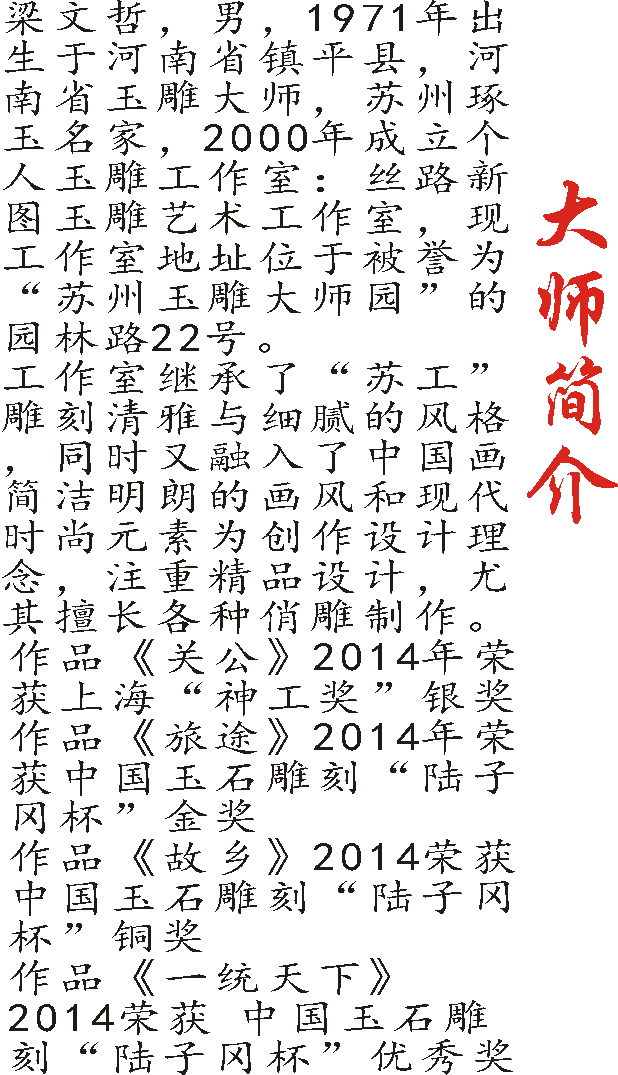 大师简介
梁文哲，男，1971年出
生于河南省镇平县，河
南省玉雕大师，苏州琢
玉名家，2000年成立个
人玉雕工作室：丝路新
图玉雕艺术工作室，现
工作室地址位于被誉为
“苏州玉雕大师园”的
园林路22号。
工作室继承了“苏工”
雕刻清雅与细腻的风格
，同时又融入了中国画
简洁明朗的画风和现代
时尚元素为创作设计理
念，注重精品设计，尤
其擅长各种俏雕制作。
作品《关公》2014年荣
获上海“神工奖”银奖
作品《旅途》2014年荣
获中国玉石雕刻“陆子
冈杯”金奖
作品《故乡》2014荣获
中国玉石雕刻“陆子冈
杯”铜奖
作品《一统天下》
2014荣获 中国玉石雕
刻“陆子冈杯”优秀奖